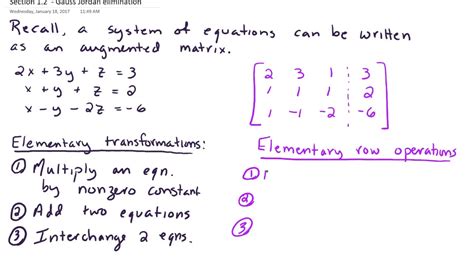 Section 1.2 - Gauss Jordan elimination
Wednesday, January 18, 2017 11:49 AM
Recall, a system of equations can be written
as an augmented matrix.
2x + 3y + z = 3
x + y + z = 2
x - y - 2z = -6
2 3 1 3
1 1 1 2
1 -1 -2 -6
Elementary transformations:
① Multiply an eqn.
by nonzero constant
② Add two equations
③ Interchange 2 eqns.
Elementary row operations
①
②
③